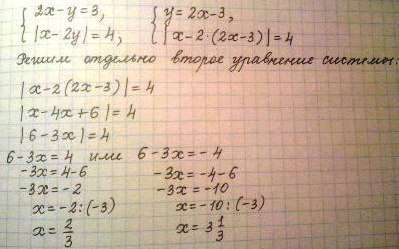 { 2x-y=3,   { y=2x-3,
{ |x-2y|=4,   { |x-2·(2x-3)|=4
Решим отдельно второе уравнение системы:
|x-2(2x-3)|=4
|x-4x+6|=4
|6-3x|=4
6-3x=4 или 6-3x=-4
-3x=4-6   -3x=-4-6
-3x=-2   -3x=-10
x=-2:(-3)   x=-10:(-3)
x=2/3   x=3 1/3